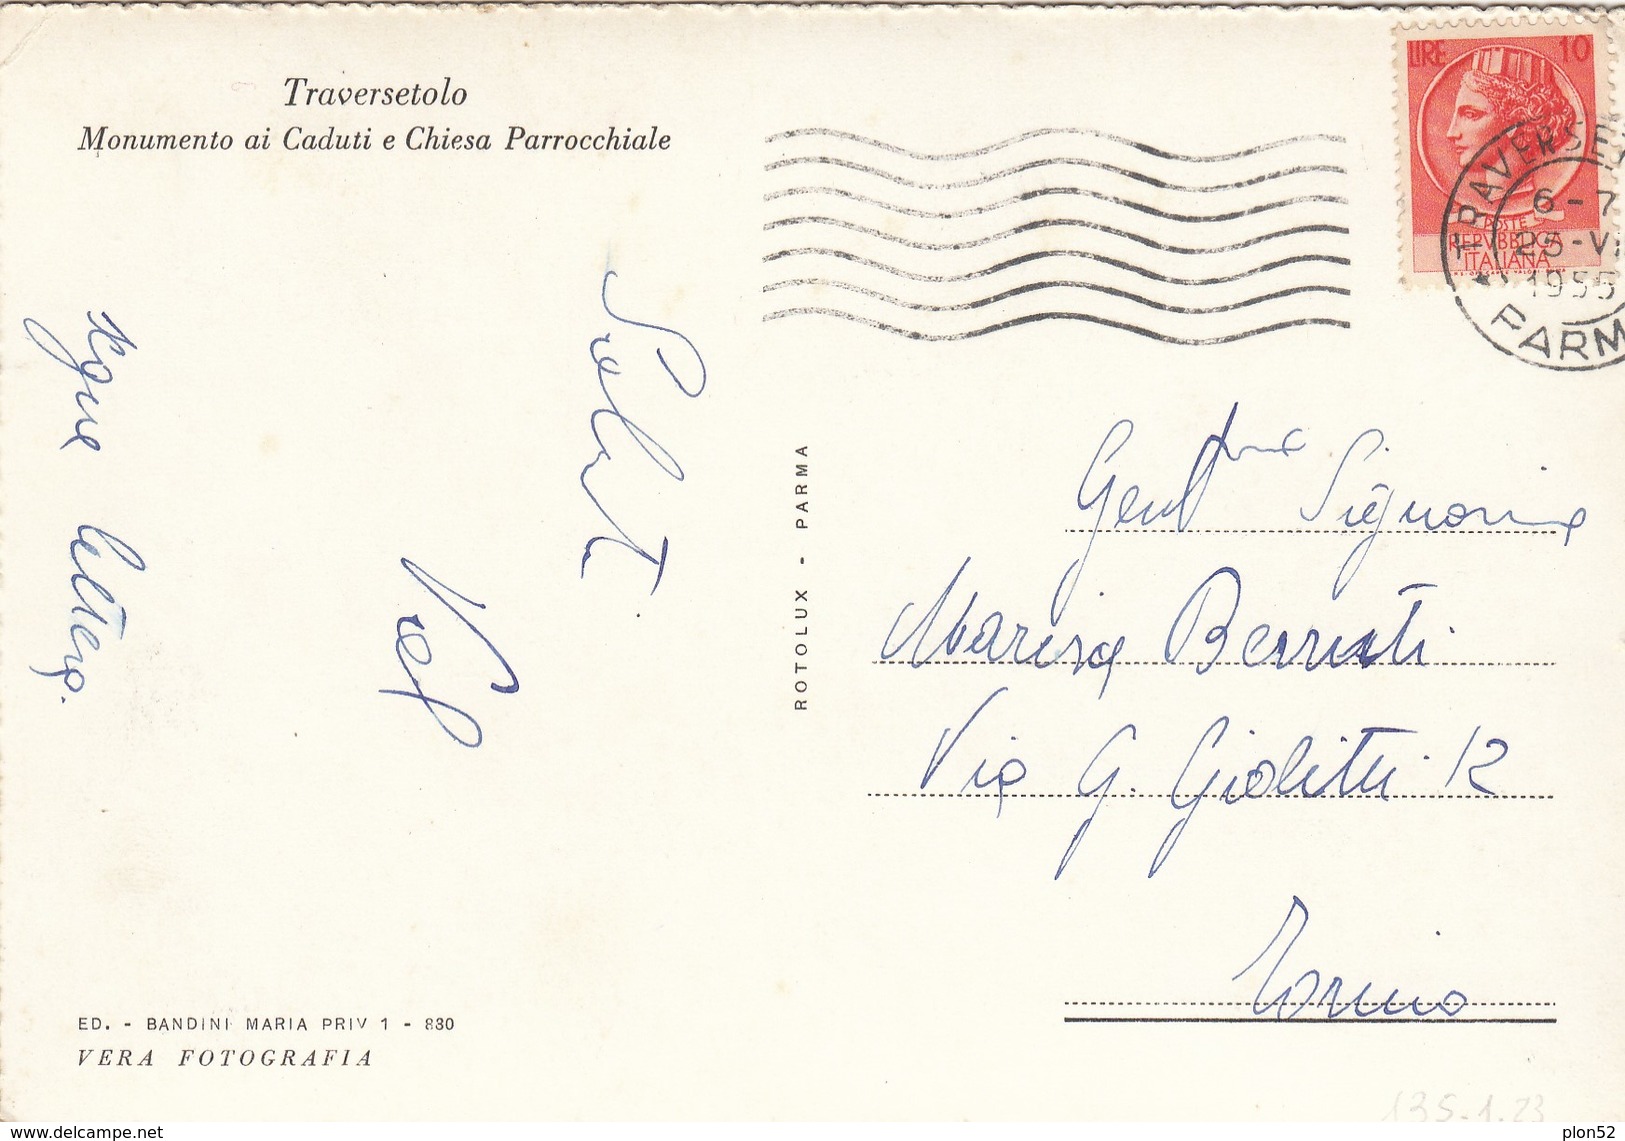 Traversetolo
Monumento ai Caduti e Chiesa Parrocchiale
LIRE 10
POSTE
REPVBBLICA
ITALIANA
TRAVERSET
6-7
23-VI
1955
PARM
Saluti
segue lettera.
ROTOLUX - PARMA
Gent.ma Signorina
Marisa Berruti
Via G. Giolitti 12
Torino
ED. - BANDINI MARIA PRIV 1 - 830
VERA FOTOGRAFIA
135-1-23
delcampe.net
plon52